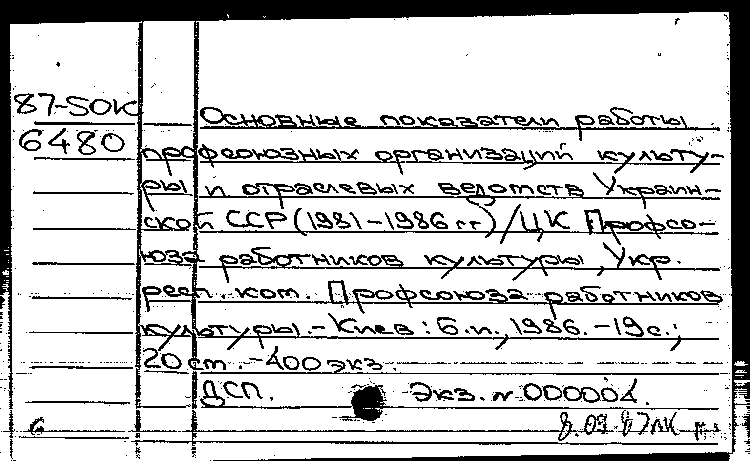 87-50К
6480
Основные показатели работы
профсоюзных организаций культу-
ры и отраслевых ведомств Украин-
ской ССР (1981-1986 гг) / ЦК Профсо-
юза работников культуры, Укр.
респ. ком. Профсоюза работников
культуры. - Киев: Б.и., 1986. - 19 с.;
20 см. - 400 экз.
ДСП. Экз. № 000004.
8.09.87